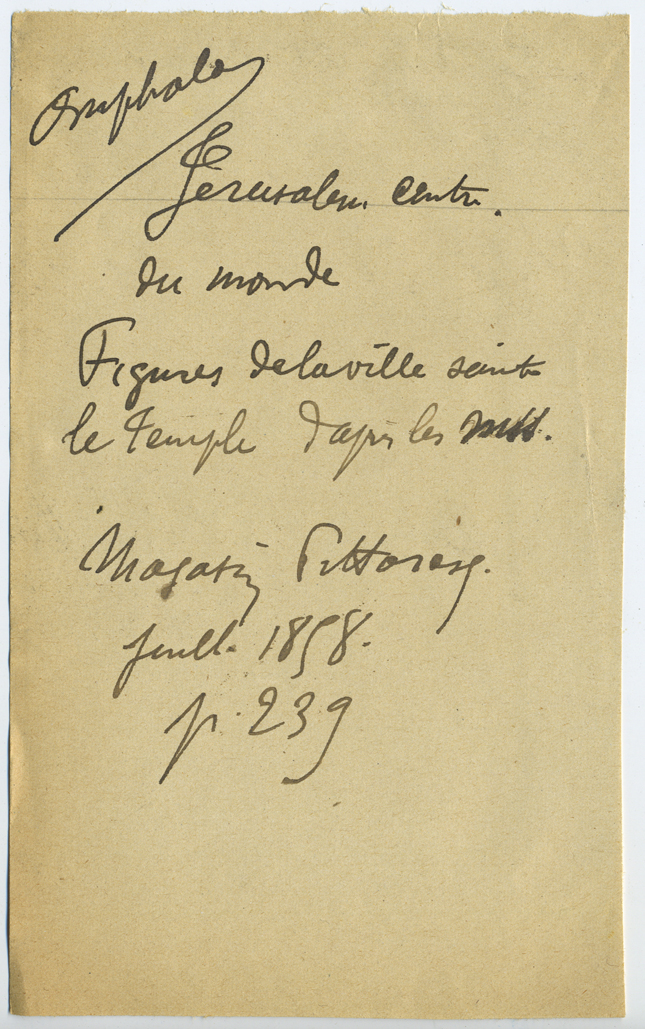 Omphalos
Jerusalem centre
du monde
Figures de la ville sainte
le Temple d'après les mss.
Magasin Pittoresq.
juill. 1858.
p. 239